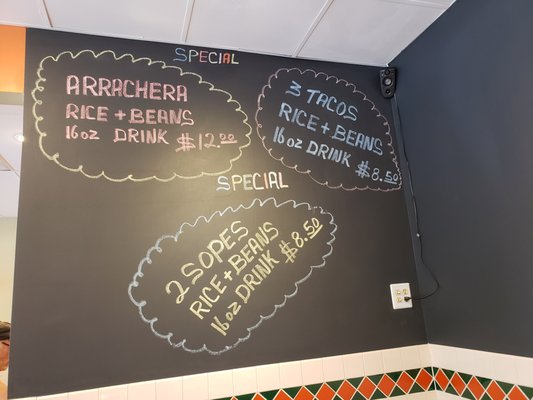 SPECIAL
ARRACHERA
RICE + BEANS
16oz DRINK $12.00
3 TACOS
RICE + BEANS
16oz DRINK $8.50
SPECIAL
2 SOPES
RICE + BEANS
16oz DRINK $8.50